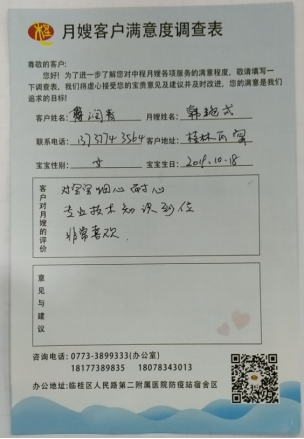 月嫂客户满意度调查表
尊敬的客户:
您好!为了进一步了解您对中程月嫂各项服务的满意程度,敬请填写一
下调查表,我们将虚心接受您的宝贵意见及建议并及时改进,您的满意是我们
追求的目标!
客户姓名: 月嫂姓名:
联系电话: 客户地址: 桂林
宝宝性别: 女 宝宝生日: 2019.10.18
客户对月嫂的评价
对宝宝细心 耐心
专业技术知识到位
非常喜欢
意见与建议
咨询电话: 0773-3899333(办公室)
18177389835 18078343013
办公地址:临桂区人民路第二附属医院防疫站宿舍区